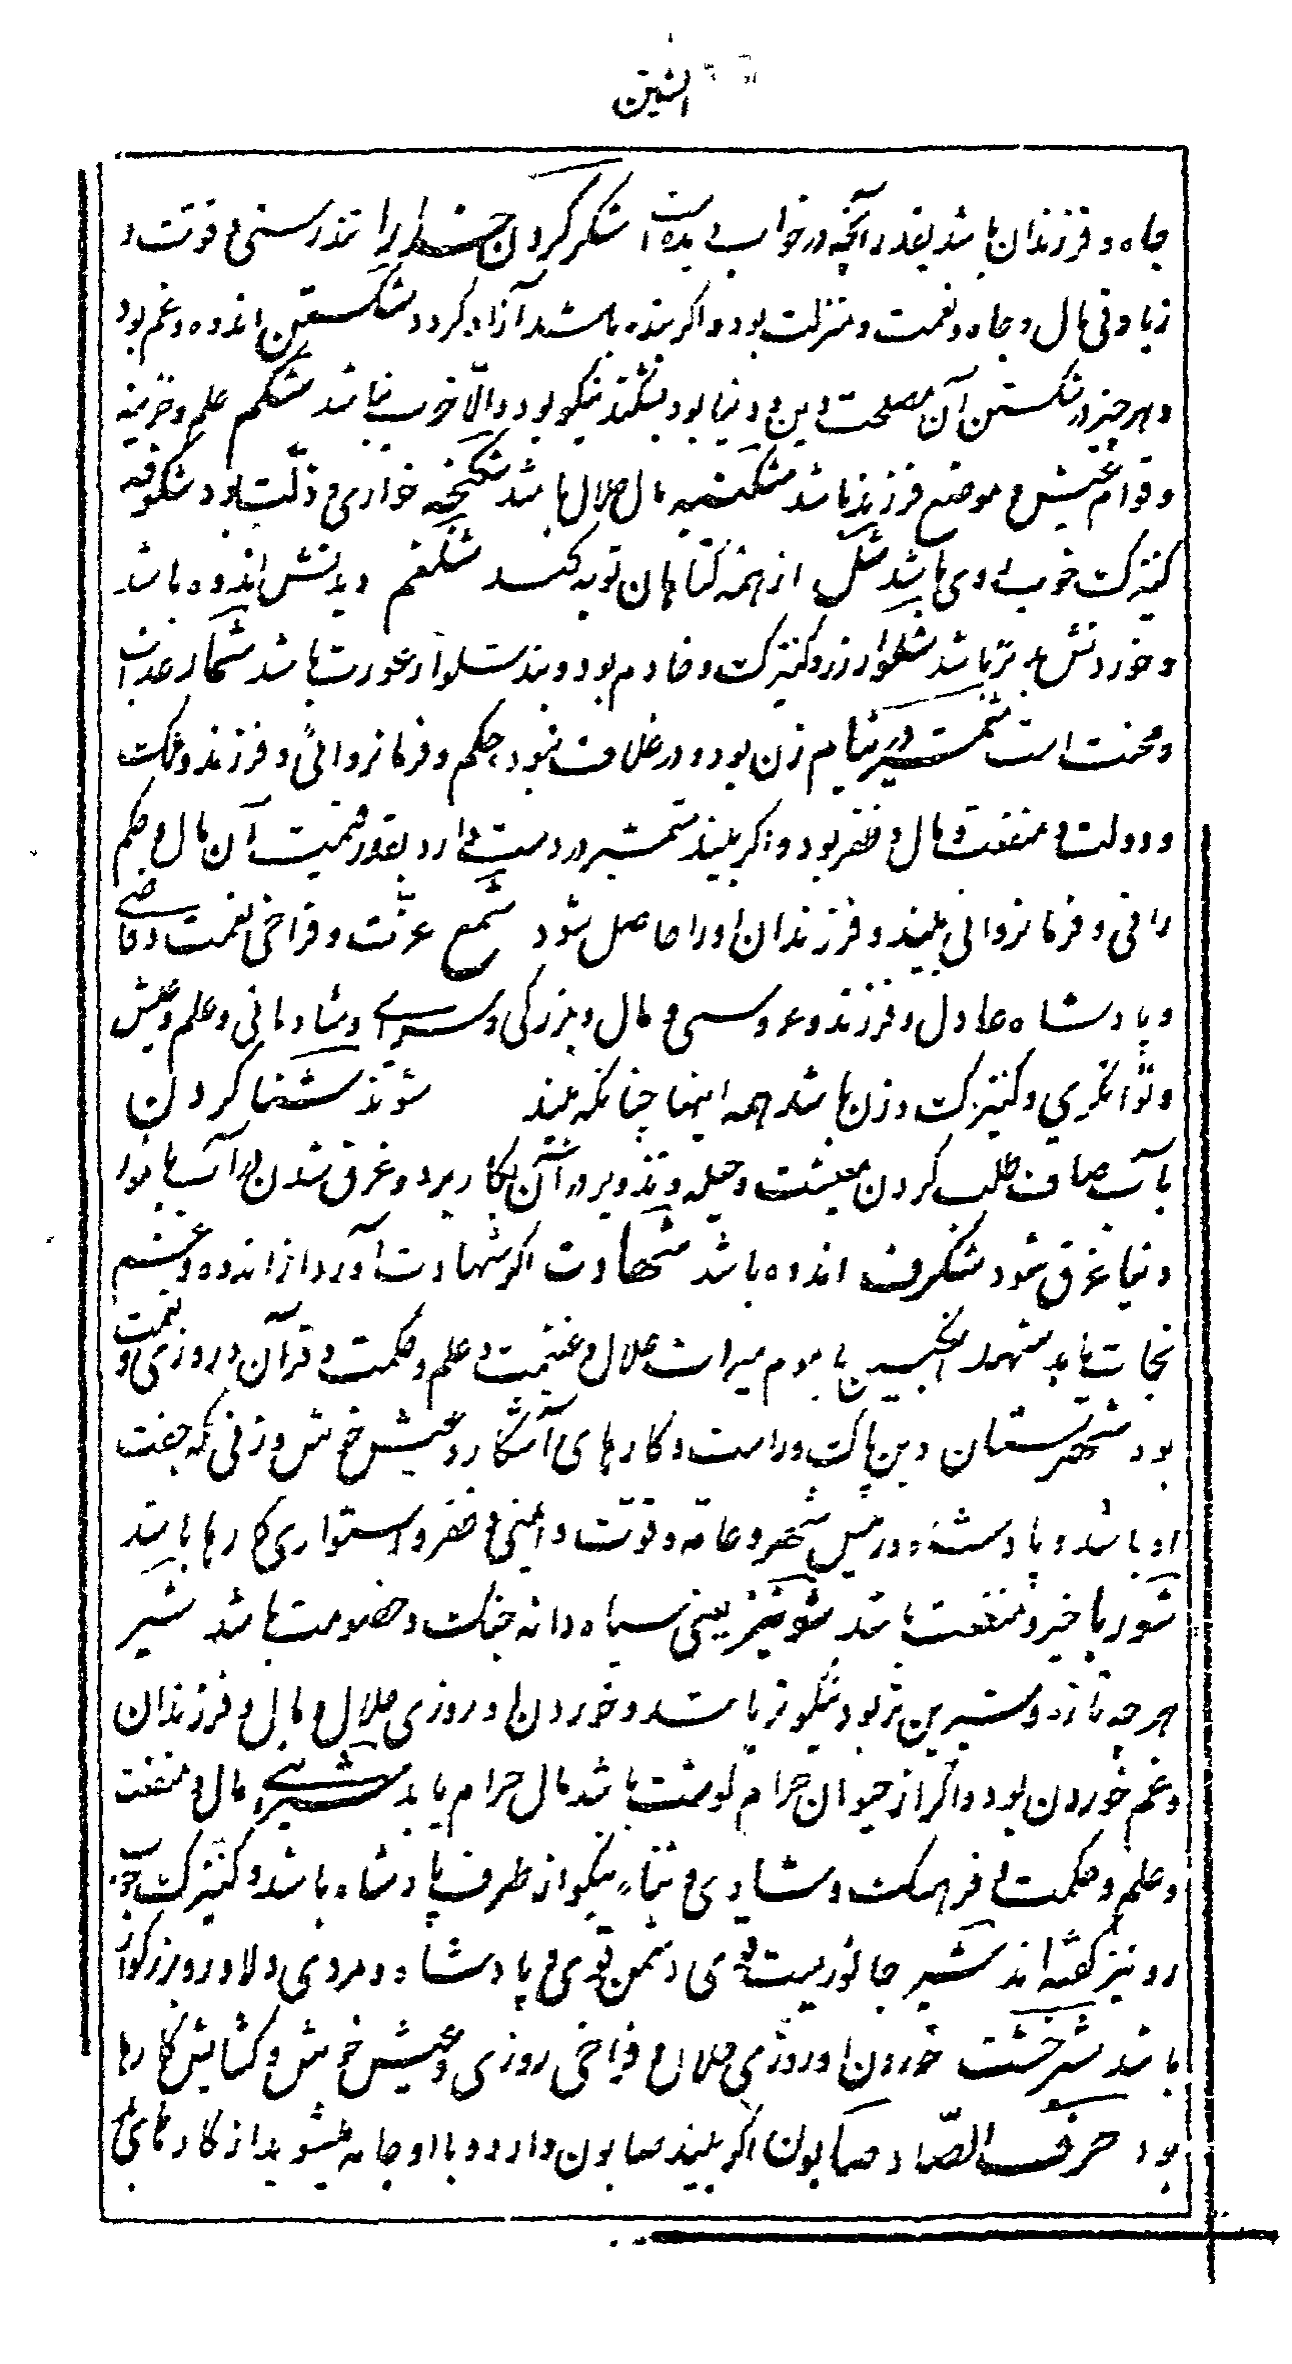 الشین
جاه و فرزندان باشد بقدر آنچه در خواب دیده است شکر کردن خدایرا تندرستی و قوت و
زیادتی مال و جاه و نعمت و منزلت بود و اکر بنده باشد آزاد کردد شکستن اندوه و غم بود
و هر چیز در شکستن آن مصلحت دین و دنیا بود بشکند نیکو بود و الّا خوب نباشد شکم علم و خزینه
و قوام عیش و موضع فرزند باشد شکنبه مال حلال باشد شکنجه خواری و ذلّت بود شکوفه
کنیزک خوب روی باشد از همه کناهان توبه کند شلغم دیدنش اندوه باشد
و خوردنش بتر باشد شلوار زن و کنیزک و خادم بود و بند شلوار عورت باشد شمار عذاب
و محنت است شمشیر در نیام زن بود و در غلاف نبود حکم و فرمانروائی و فرزند و ملک
و دولت و منفعت و مال و ظفر بود و اکر بیند شمشیر در دست دارد بقدر قیمت آن مال و حکم
رانی و فرمانروانی بیند و فرزندان او را حاصل شود شمع عزّت و فراخی نعمت و قاضی
و پادشاه عادل و فرزند و عروسی و مال و بزرکی و سرای و شادمانی و علم و عیش
و توانکری و کنیزک و زن باشد همه اینها چنانکه بیند شوند شنا کردن
بآب صاف طلب کردن معیشت و حیله و تذویر در آن بکار برد و غرق شدن در آب با نور
دنیا غرق شود شنکرف اندوه باشد شهادت اکر شهادت آورد از اندوه و غم
نجات یابد شهد انکبین با موم میراث حلال و غنیمت و علم و حکمت و قرآن و روزی و نعمت
بود شهرستان دین پاک و راست و کارهای آشکار و عیش خوش و زنی که جفت
او باشد و پادشاه و رئیس شهر و عامّه و قوّت و ایمنی و ظفر و استواری کارها باشد
شوربا خیر و منفعت باشد شونیز یعنی سیاه دانه جنک و خصومت باشد شیر
هر چه تازه و شیرین تر بود نیکوتر باشد و خوردن او روزی حلال و مال و فرزندان
و غم خوردن بود و اکر از حیوان حرام کوشت باشد مال حرام یابد مال و منفعت
و علم و حکمت و فرهنک و شادی و ثناء نیکو از طرف پادشاه باشد و کنیزک خوب
رو نیز کفته اند شیر جانوریست قوی دشمن قوی و پادشاه و مردی دلاور و بزرکوار
باشد شیرخشت خوردن او روزی حلال و فراخی روزی و عیش خوش و کشایش کارها
بود حرف الصّاد صابون اکر بیند صابون دارد و با او جامه میشوید از کارهای